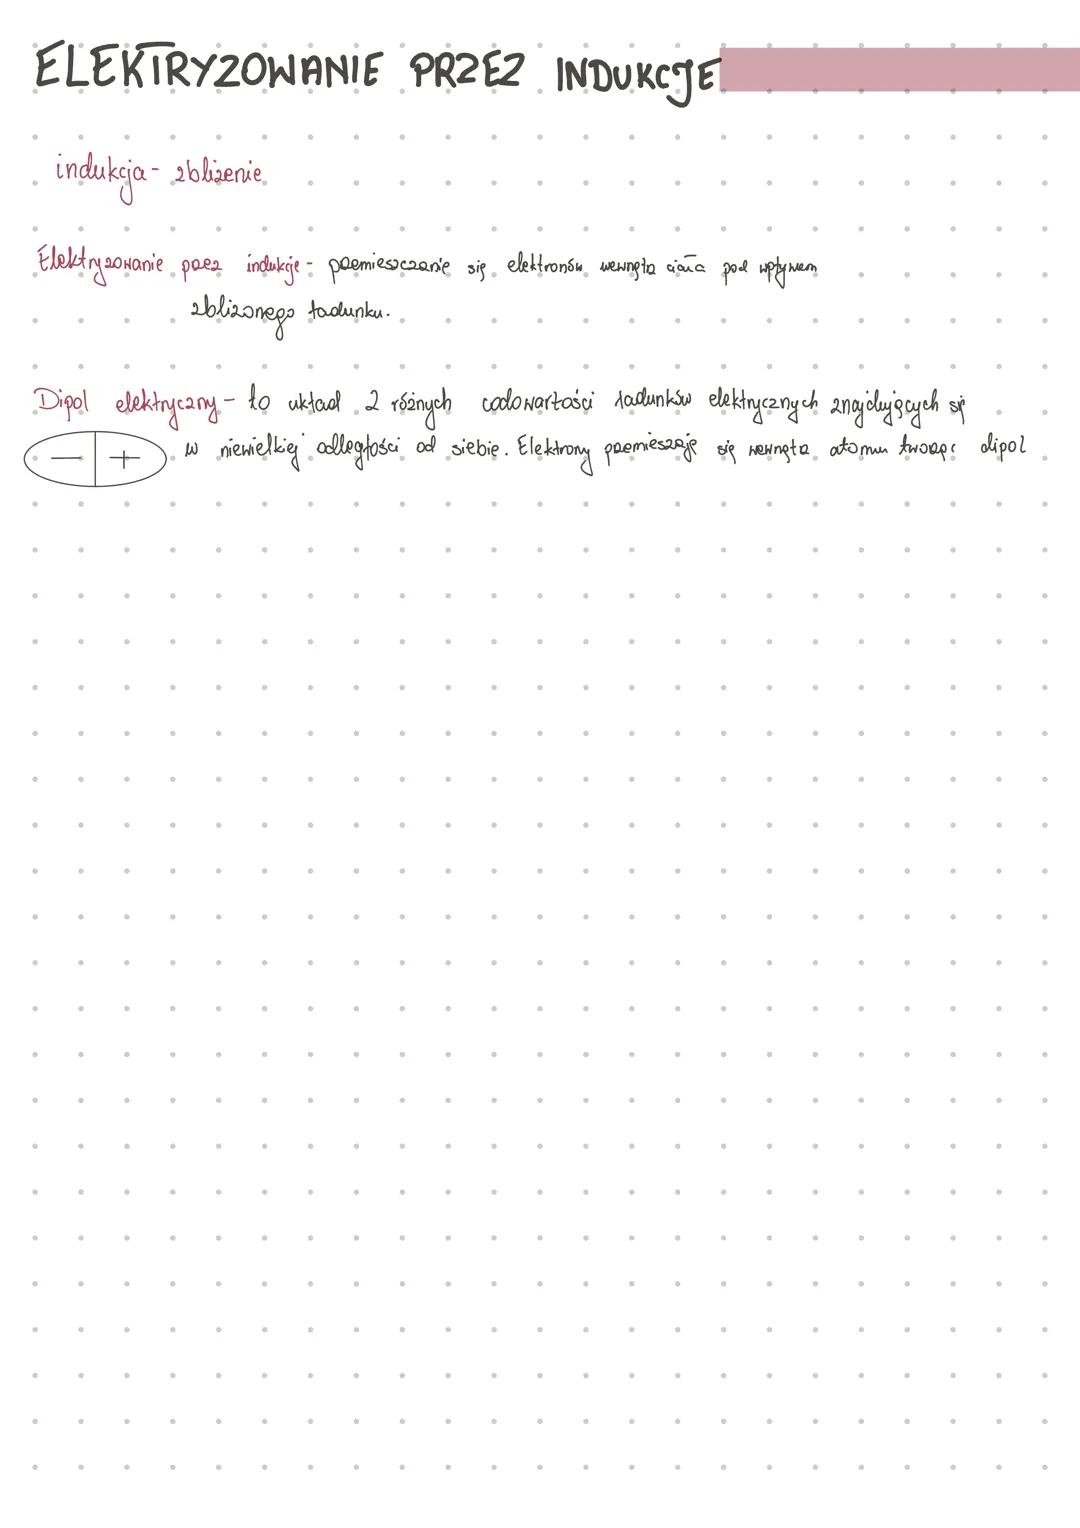 ELEKTRYZOWANIE PRZEZ INDUKCJE
indukcja - zbliżenie
Elektryzowanie przez indukcje - przemieszczanie się elektronów wewnątrz ciała pod wpływem
zbliżonego ładunku.
Dipol elektryczny - to układ 2 różnych co do wartości ładunków elektrycznych znajdujących się
- + w niewielkiej odległości od siebie. Elektrony przemieszzają się wewnątrz atomu tworząc dipol